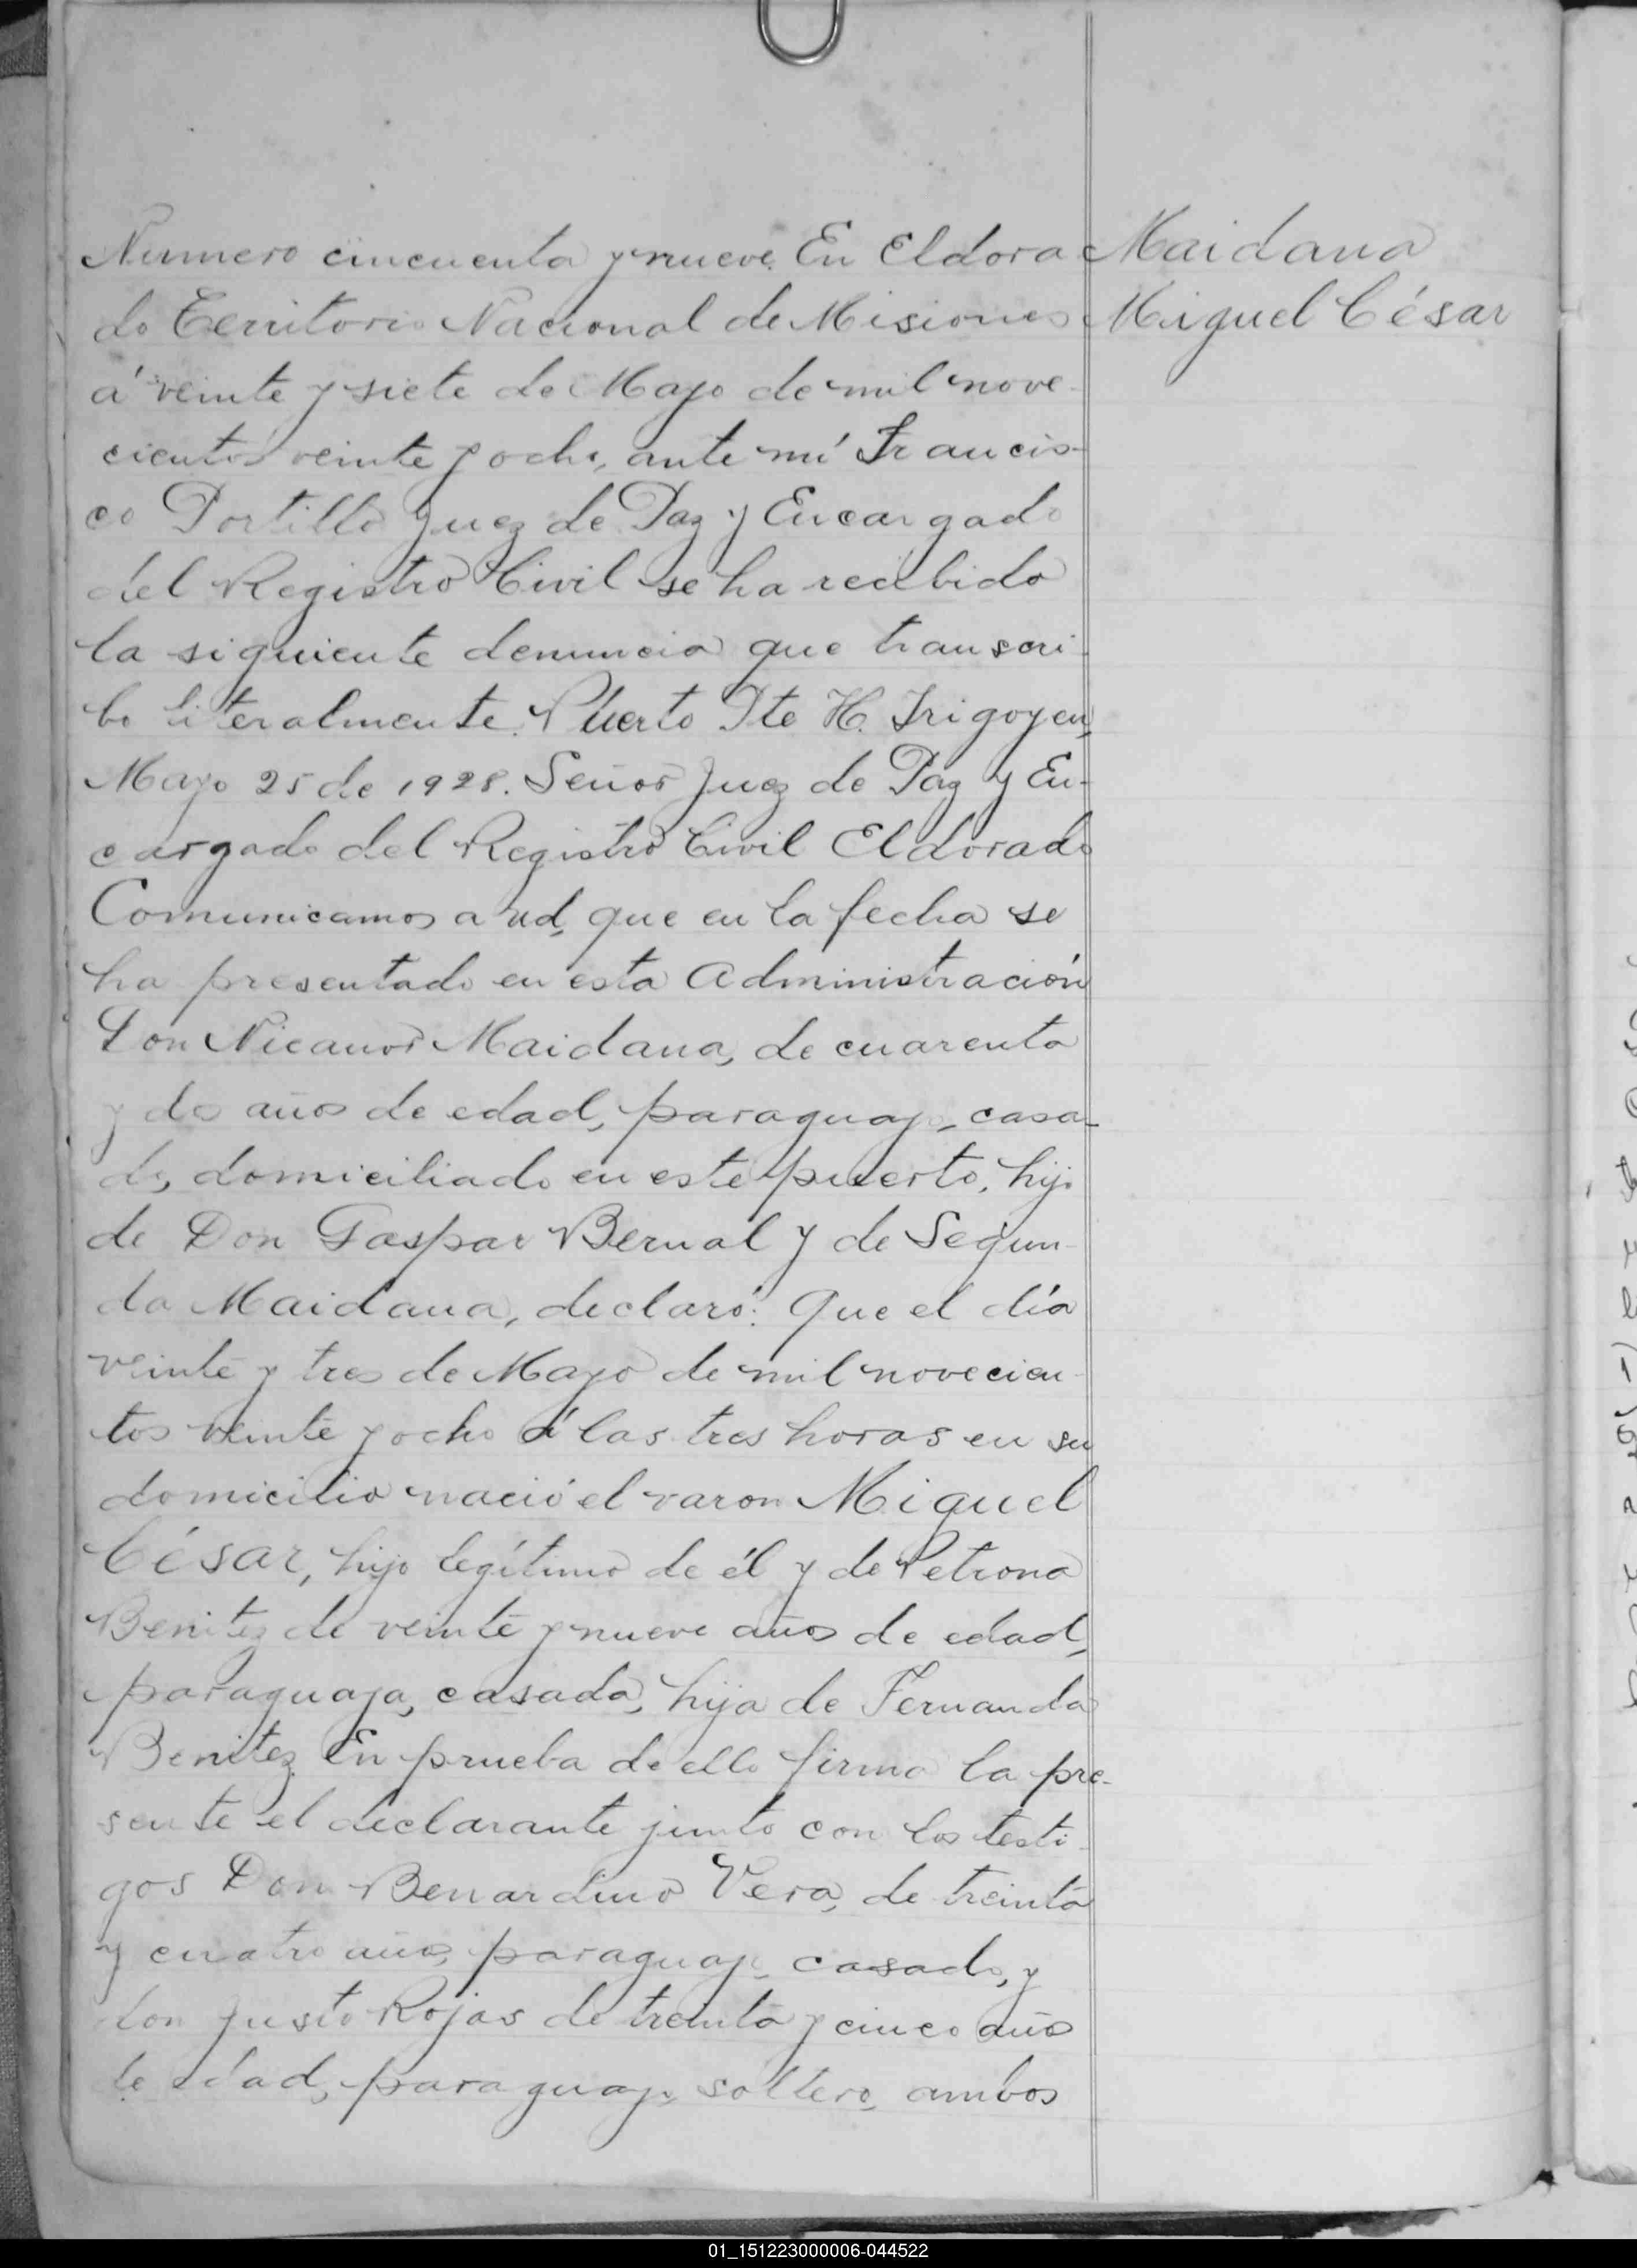 Maidana
Miguel César
Numero cincuenta y nueve. En Eldora
do Territorio Nacional de Misiones
á veinte y siete de Mayo de mil nove-
cientos veinte y ocho, ante mí Francis-
co Portillo Juez de Paz y Encargado
del Registro Civil se ha recibido
la siguiente denuncia que transcri-
bo literalmente. Puerto Pte H. Irigoyen,
Mayo 25 de 1928. Señor Juez de Paz y En-
cargado del Registro Civil Eldorado
Comunicamos a ud, que en la fecha se
ha presentado en esta Administración
Don Nicanor Maidana, de cuarenta
y dos años de edad, paraguayo, casa-
do, domiciliado en este puerto, hijo
de Don Gaspar Bernal y de Segun-
da Maidana, declaró: Que el día
veinte y tres de Mayo de mil novecien-
tos veinte y ocho á las tres horas en su
domicilio nació el varon Miguel
César, hijo legítimo de él y de Petrona
Benitez de veinte y nueve años de edad,
paraguaya, casada, hija de Fernanda
Benitez. En prueba de ello firma la pre-
sente el declarante junto con los testi-
gos Don Benardino Vera, de treinta
y cuatro años, paraguayo, casado, y
don Justo Rojas de treinta y cinco años
de edad, paraguayo, soltero, ambos
01_151223000006-044522